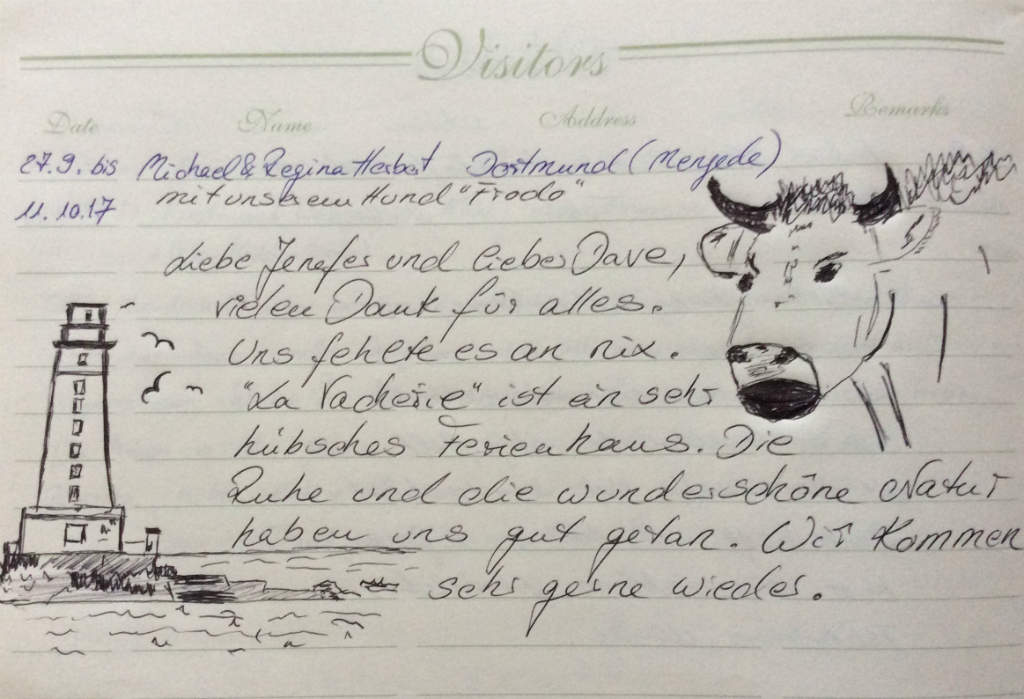 Visitors
Date Name Address Remarks
27.9. bis Michael & Regina Herbort Dortmund (Mengede)
11.10.17 mit unserem Hund "Frodo"
Liebe Jenefer und lieber Dave,
vielen Dank für alles.
Uns fehlte es an nix.
"La Vacherie" ist ein sehr
hübsches Ferienhaus. Die
Ruhe und die wunderschöne Natur
haben uns gut getan. Wir kommen
sehr gerne wieder.